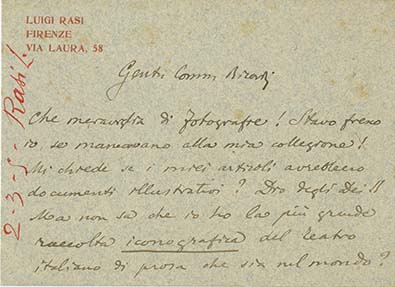 LUIGI RASI
FIRENZE
VIA LAURA, 58
2-3-5- Rasi L.
Gentil Comm. Ricordi
Che meraviglia di fotografie! Stavo fresco
io se mancavano alla mia collezione!
Mi chiede se i miei articoli avrebbero
documenti illustrativi? Dio degli Dei!!
Ma non sa che io ho la più grande
raccolta iconografica del teatro
italiano di prosa che sia nel mondo?